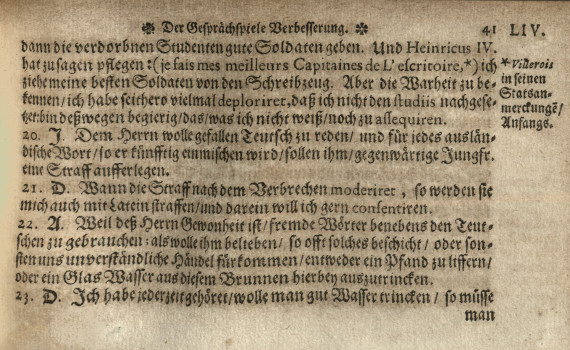 ❈ Der Gesprächspiele Verbesserung. ❈ 41 LIV.
dann die verdorbnen Studenten gute Soldaten geben. Und Heinricus IV.
hat zu sagen pflegen: (je fais mes meilleurs Capitaines de L' escritoire,*) ich
ziehe meine besten Soldaten von den Schreibzeug. Aber die Warheit zu be-
kennen / ich habe seithero vielmal deplorirer, daß ich nicht den studiis nachgese-
tzet: bin deßwegen begierig / das / was ich nicht weiß / noch zu assequiren.
* Villerois
in seinen
Statsan-
merckungē /
Anfangs.
20. J. Dem Herrn wolle gefallen Teutsch zu reden / und für jedes auslän-
dische Wort / so er künfftig einmischen wird / sollen ihm / gegenwärtige Jungfr.
eine Straff aufferlegen.
21. D. Wann die Straff nach dem Verbrechen moderirer, so werden sie
mich auch mit Latein straffen / und darein will ich gern consentiren.
22. A. Weil deß Herrn Gewonheit ist / fremde Wörter benebens den Teut-
schen zu gebrauchen: als wolle ihm belieben / so offt solches beschicht / oder son-
sten uns unverständliche Händel fürkommen / entweder ein Pfand zu liffern /
oder ein Glas Wasser aus diesem Brunnen hierbey auszutrincken.
23. D. Ich habe jederzeit gehöret / wolle man gut Wasser trincken / so müsse
man